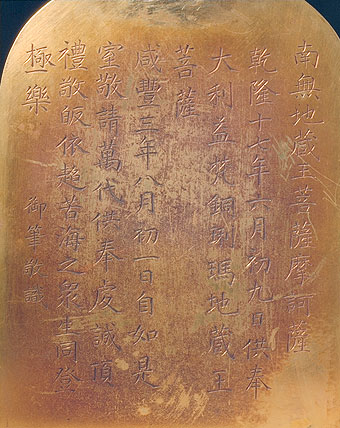 南無地藏王菩薩摩訶薩
乾隆十七年六月初九日供奉
大利益梵銅琍瑪地藏王
菩薩
咸豐三年八月初一日自如是
室敬請萬代供奉虔誠頂
禮敬皈依超苦海之眾生同登
極樂
御筆敬識